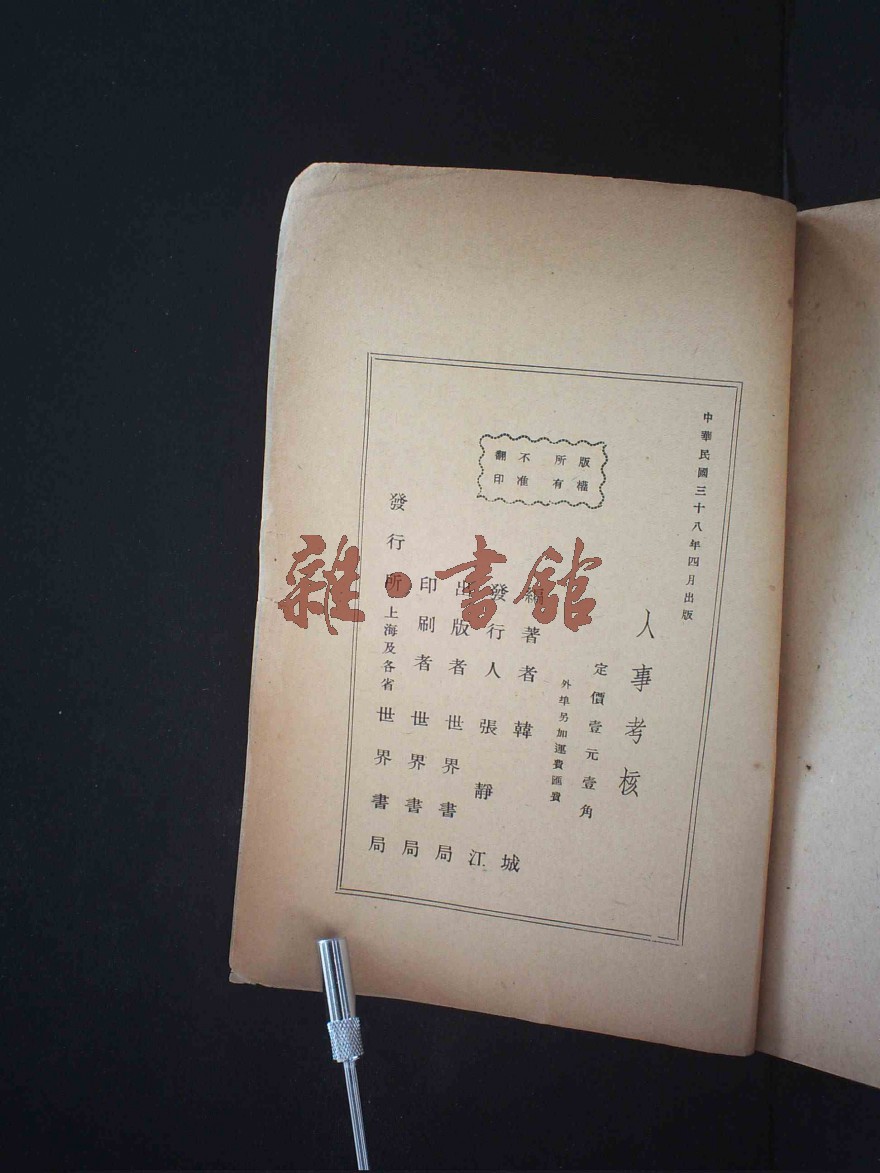 中華民國三十八年四月出版
人事考核
定價壹元壹角
外埠另加運費匯費
版權所有
不准翻印
編著者 韓城
發行人 張靜江
出版者 世界書局
印刷者 世界書局
發行所 上海及各省 世界書局
雜·書館